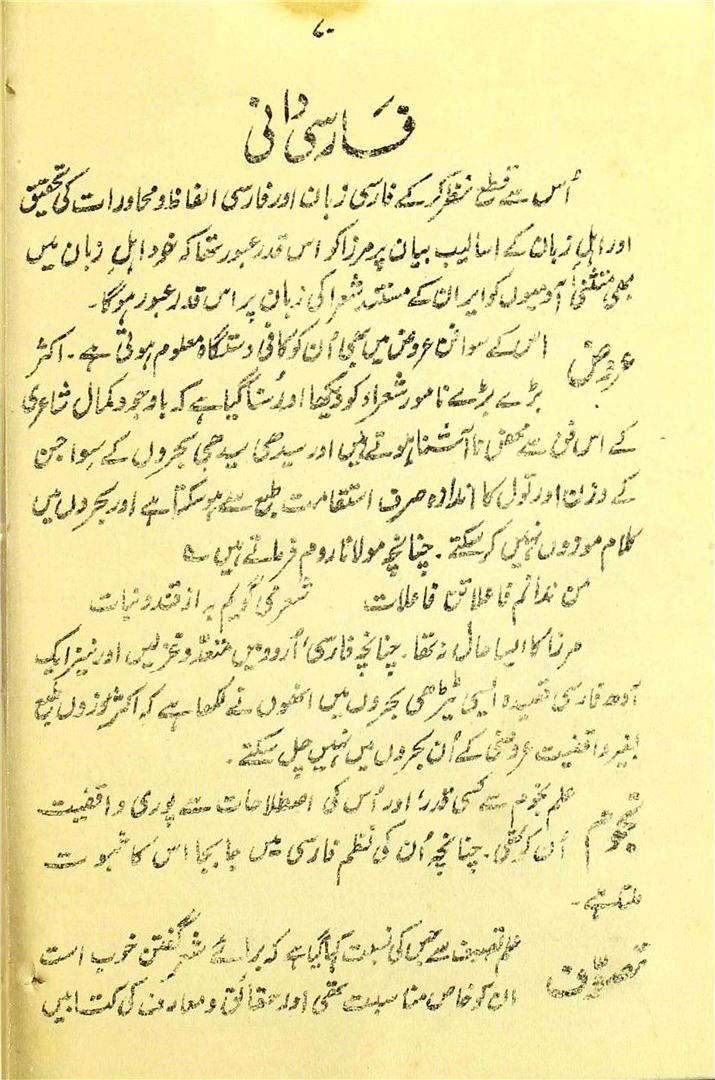 ۷۰
فارسی دانی
اُس سے قطع نظر کر کے فارسی زبان اور فارسی الفاظ و محاورات کی تحقیق
اور اہلِ زبان کے اسالیب بیان پر مرزا کو اس قدر عبور تھا کہ خود اہلِ زبان میں
بھی مستثنیٰ آدمیوں کو ایران کے مستند شعرا کی زبان پر اس قدر عبور ہوگا۔
عروض اس کے سوا فن عروض میں بھی اُن کو کافی دستگاہ معلوم ہوتی ہے۔ اکثر
بڑے بڑے نامور شعراء کو دیکھا اور سُنا گیا ہے کہ باوجود کمال شاعری
کے اس فن سے محض ناآشنا ہوتے ہیں اور سیدھی سیدھی بحروں کے سوا جن
کے وزن اور تول کا اندازہ صرف استقامت طبع سے ہو سکتا ہے اور بحروں میں
کلام موزوں نہیں کر سکتے۔ چنانچہ مولانا روم فرماتے ہیں ؎
من ندانم فاعلاتن فاعلات شعر می گویم بہ از قند و نبات
مرزا کا ایسا حال نہ تھا۔ چنانچہ فارسی، اُردو میں متعدّد غزلیں اور نیز ایک
آدھ فارسی قصیدہ ایسی ٹیڑھی بحروں میں انھوں نے لکھا ہے کہ اکثر موزوں طبع
بغیر واقفیت عروض کے اُن بحروں میں نہیں چل سکتے۔
نجوم علم نجوم سے کسی قدر، اور اُس کی اصطلاحات سے پوری واقفیت
اُن کو تھی۔ چنانچہ اُن کی نظم فارسی میں جا بجا اس کا ثبوت
ملتا ہے۔
تصوّف علم تصوف سے جس کی نسبت کہا گیا ہے کہ برائے شعر گفتن خوب است
ان کو خاص مناسبت تھی اور حقائق و معارف کی کتابیں